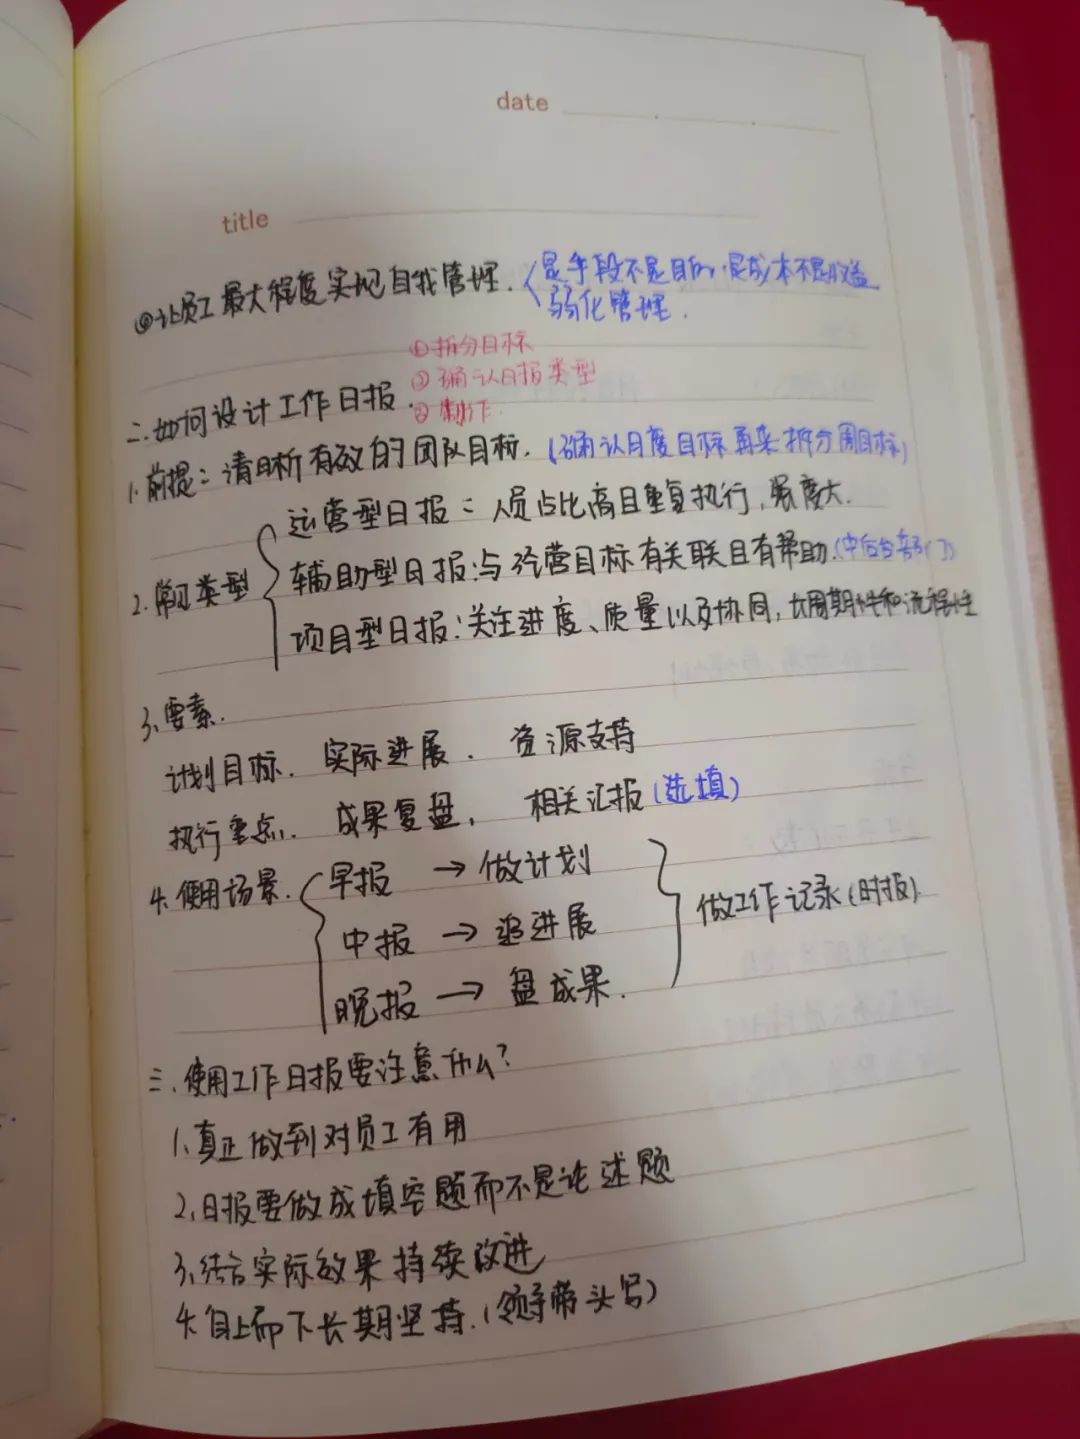 date
title
⑧让员工最大程度实现自我管理.
是手段不是目的,是成本不是收益
弱化管理.
二.如何设计工作日报.
①拆分目标
②确认日报类型
③制作
1.前提:清晰有效的团队目标.(确认月度目标再来拆分周目标)
2.常见类型
运营型日报:人员占比高且重复执行,强度大.
辅助型日报:与经营目标有关联且有帮助.(中后台部门)
项目型日报:关注进度、质量以及协同,长周期性和流程性
3、要素.
计划目标. 实际进展. 资源支持
执行重点. 成果复盘, 相关汇报(选填)
4.使用场景.
早报 → 做计划
中报 → 追进展
晚报 → 盘成果.
做工作记录(时报).
三.使用工作日报要注意什么?
1、真正做到对员工有用
2、日报要做成填空题而不是论述题
3、结合实际效果持续改进
4.自上而下长期坚持.(领导带头写)